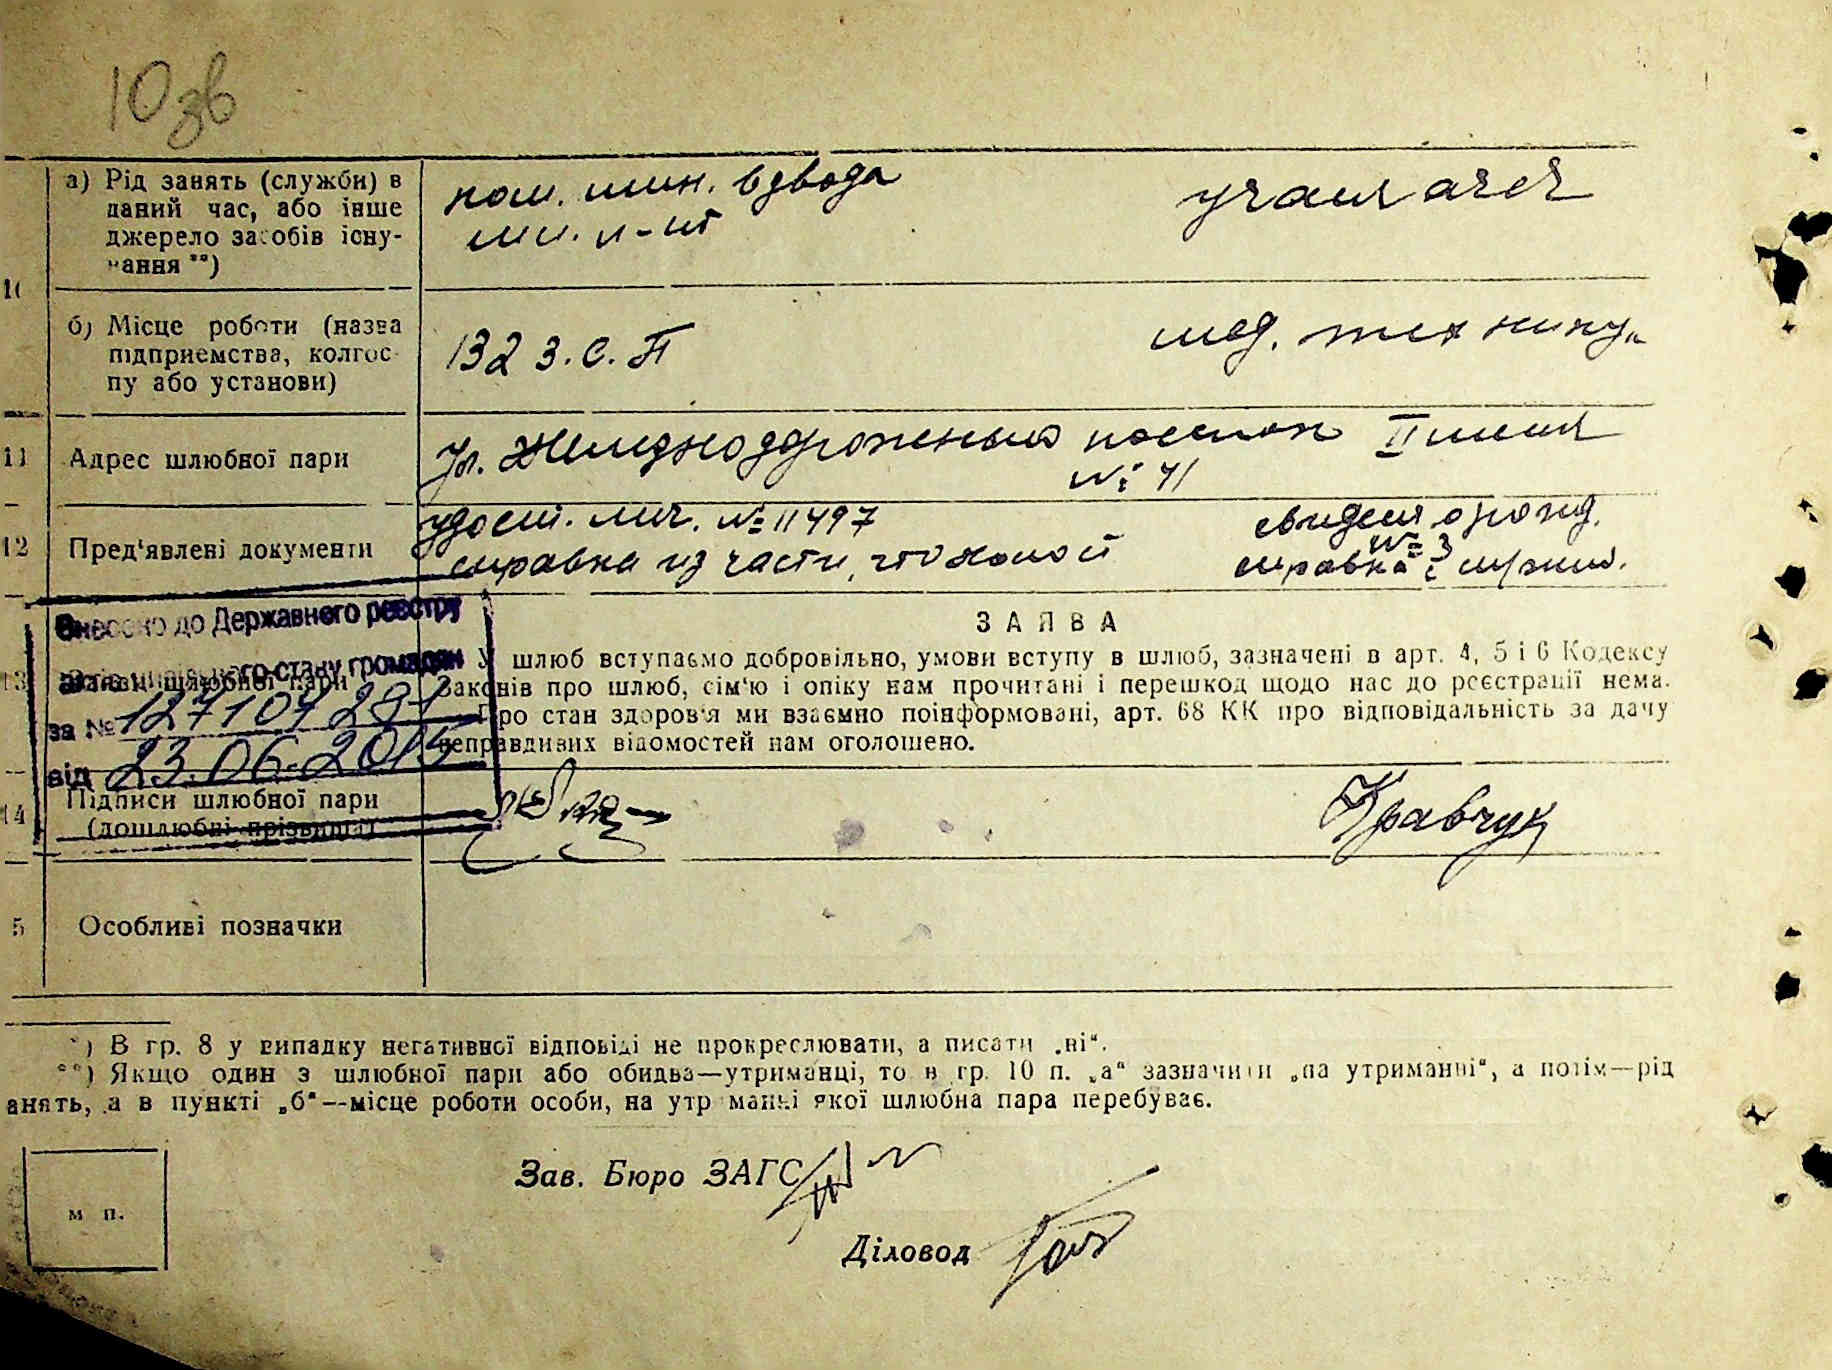 10 зв
а) Рід занять (служби) в
даний час, або інше
джерело засобів існу-
вання **)
пом. мин. взвода
мл. л-нт
учащаяся
10
б) Місце роботи (назва
підприємства, колгос-
пу або установи)
132 З.С.П
мед. техникум
11
Адрес шлюбної пари
Ул. Железнодорожный поселок II линия
№ 41
12
Пред'явлені документи
удост. лич. № 11497
справка из части, что холост
свидет. о рожд.
№ 3
справка с
Внесено до Державного реєстру
актів цивільного стану громадян
за № 127107281
від 23.06.2015
ЗАЯВА
13
Заяви шлюбної пари
У шлюб вступаємо добровільно, умови вступу в шлюб, зазначені в арт. 4, 5 і 6 Кодексу
Законів про шлюб, сім'ю і опіку нам прочитані і перешкод щодо нас до реєстрації нема.
Про стан здоров'я ми взаємно поінформовані, арт. 68 КК про відповідальність за дачу
неправдивих відомостей нам оголошено.
14
Підписи шлюбної пари
(дошлюбні прізвища)
Кравчук
5
Особливі позначки
*) В гр. 8 у випадку негативної відповіді не прокреслювати, а писати „ні“.
**) Якщо один з шлюбної пари або обидва—утриманці, то в гр. 10 п. „а“ зазначити „на утриманні“, а потім—рід
анять, а в пункті „б“—місце роботи особи, на утриманні якої шлюбна пара перебуває.
Зав. Бюро ЗАГС
м п.
Діловод